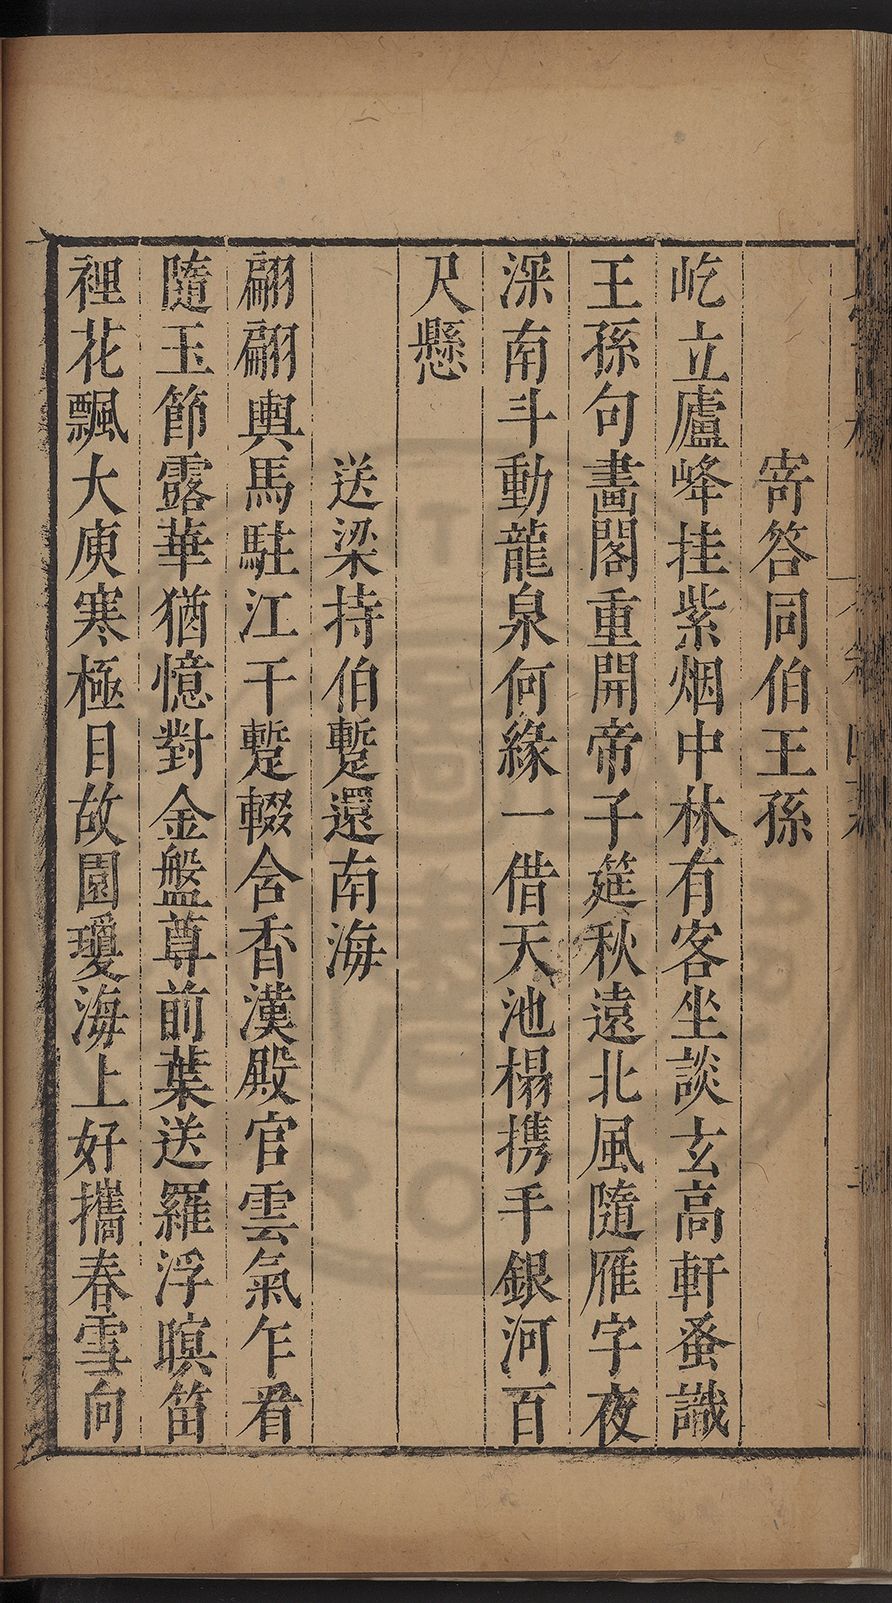 寄答同伯王孫
屹立廬峰挂紫烟中林有客坐談玄高軒蚤識
王孫句畵閣重開帝子筵秋遠北風隨雁字夜
深南斗動龍泉何緣一借天池榻携手銀河百
尺懸
送梁持伯蹔還南海
翩翩輿馬駐江干蹔輟含香漢殿官雲氣乍看
隨玉節露華猶憶對金盤尊前葉送羅浮暝笛
裡花飄大庾寒極目故園瓊海上好攜春雪向